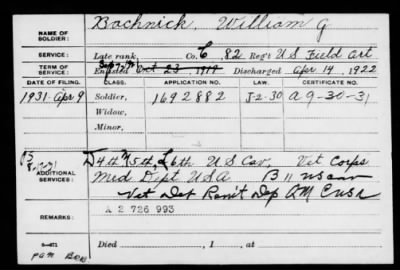 NAME OF SOLDIER: Bachnick, William G
SERVICE: Late rank, Co. C, 82 Reg't US Field Art
TERM OF SERVICE: Enlisted Oct 23, 1919 Discharged Apr 14, 1922
DATE OF FILING. CLASS. APPLICATION NO. CERTIFICATE NO.
1931-Apr 9 Soldier, 1692882 J-2-30 A 9-30-31
Widow,
Minor,
ADDITIONAL SERVICES: D 4th 15th, L 6th US Cav, Vet Corps
Med Dept USA B 11 US Cav
Vet Det Rem't Dep QM C USA
REMARKS: A 2 726 993
Died , 1 , at